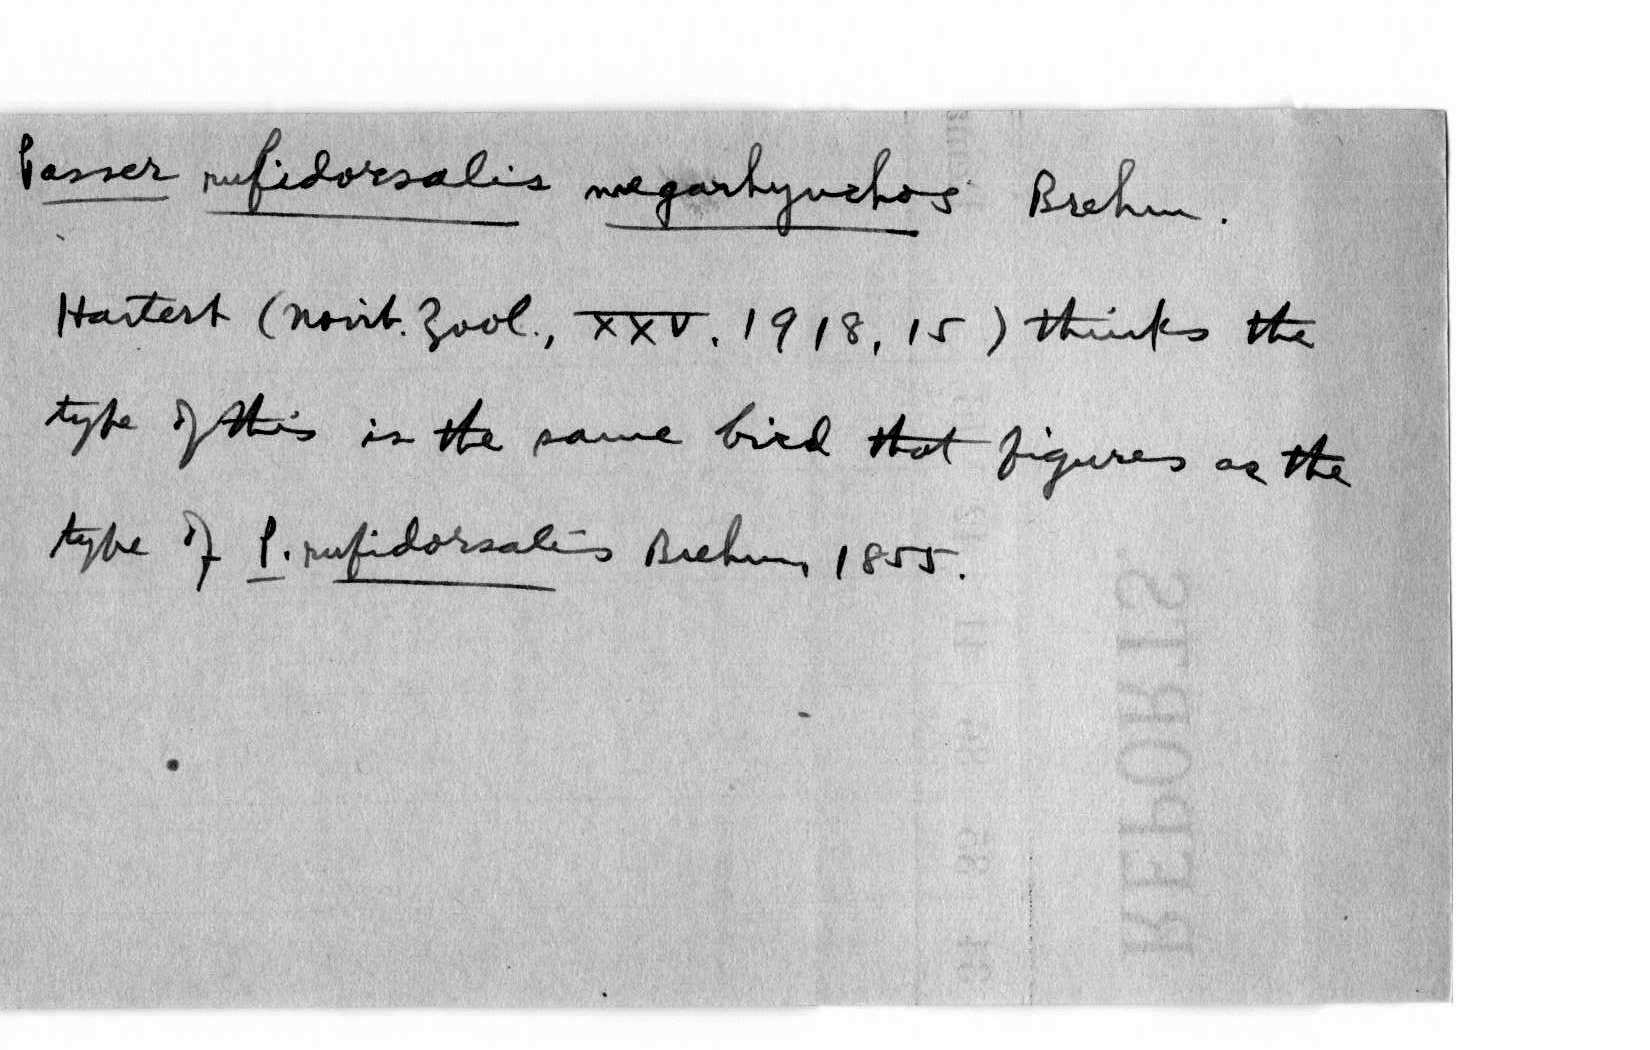 Passer rufidorsalis megarhynchos Brehm.
Hartert (Novit. Zool., XXV, 1918, 15) thinks the
type of this is the same bird that figures as the
type of P. rufidorsalis Brehm, 1855.
REPORTS